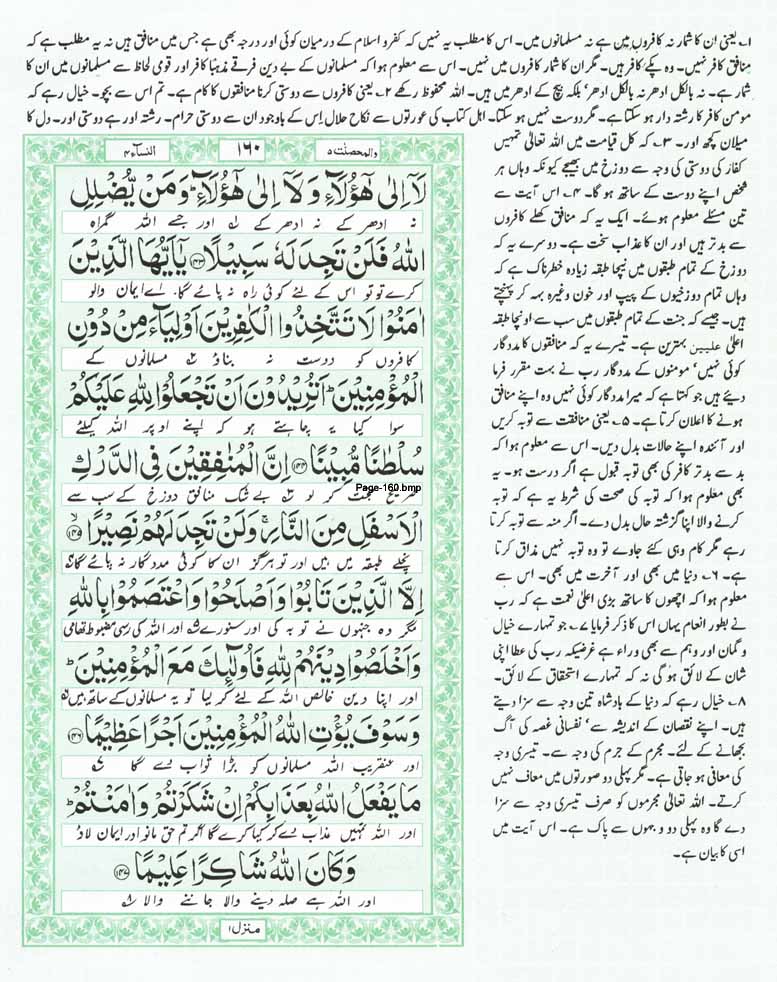 ۱۔ یعنی ان کا شمار نہ کافروں میں ہے نہ مسلمانوں میں۔ اس کا مطلب یہ نہیں کہ کفر و اسلام کے درمیان کوئی اور درجہ بھی ہے جس میں منافق ہیں نہ یہ مطلب ہے کہ
منافق کافر نہیں۔ وہ پکے کافر ہیں۔ مگر ان کا شمار کافروں میں نہیں۔ اس سے معلوم ہوا کہ مسلمانوں کے بے دین فرقے مذہبا کافر اور قومی لحاظ سے مسلمانوں میں ان کا
شمار ہے۔ نہ بالکل ادھر نہ بالکل ادھر' بلکہ بیچ کے ادھر میں ہیں۔ اللہ محفوظ رکھے ۲۔ یعنی کافروں سے دوستی کرنا منافقوں کا کام ہے۔ تم اس سے بچو۔ خیال رہے کہ
مومن کافر کا رشتہ دار ہو سکتا ہے۔ مگر دوست نہیں ہو سکتا۔ اہل کتاب کی عورتوں سے نکاح حلال اس کے باوجود ان سے دوستی حرام۔ رشتہ اور ہے دوستی اور۔ دل کا
میلان کچھ اور۔ ۳۔ کہ کل قیامت میں اللہ تعالیٰ تمہیں
کفار کی دوستی کی وجہ سے دوزخ میں بھیجے کیونکہ وہاں ہر
شخص اپنے دوست کے ساتھ ہو گا۔ ۴۔ اس آیت سے
تین مسئلے معلوم ہوئے۔ ایک یہ کہ منافق کھلے کافروں
سے بدتر ہیں اور ان کا عذاب سخت ہے۔ دوسرے یہ کہ
دوزخ کے تمام طبقوں میں نیچا طبقہ زیادہ خطرناک ہے کہ
وہاں تمام دوزخیوں کے پیپ اور خون وغیرہ بہہ کر پہنچتے
ہیں۔ جیسے کہ جنت کے تمام طبقوں میں سب سے اونچا طبقہ
اعلیٰ علیین بہترین ہے۔ تیسرے یہ کہ منافقوں کا مددگار
کوئی نہیں' مومنوں کے مددگار رب نے بہت مقرر فرما
دیئے ہیں جو کہتا ہے کہ میرا مددگار کوئی نہیں وہ اپنے منافق
ہونے کا اعلان کرتا ہے۔ ۵۔ یعنی منافقت سے توبہ کریں
اور آئندہ اپنے حالات بدل دیں۔ اس سے معلوم ہوا کہ
بد سے بدتر کافر کی بھی توبہ قبول ہے اگر درست ہو۔ یہ
بھی معلوم ہوا کہ توبہ کی صحت کی شرط یہ ہے کہ توبہ
کرنے والا اپنا گزشتہ حال بدل دے۔ اگر منہ سے توبہ کرتا
رہے مگر کام وہی کئے جاوے تو وہ توبہ نہیں مذاق کرتا
ہے۔ ۶۔ دنیا میں بھی اور آخرت میں بھی۔ اس سے
معلوم ہوا کہ اچھوں کا ساتھ بڑی اعلیٰ نعمت ہے کہ رب
نے بطور انعام یہاں اس کا ذکر فرمایا ۷۔ جو تمہارے خیال
و گمان اور وہم سے بھی وراء ہے غرضیکہ رب کی عطا اپنی
شان کے لائق ہو گی نہ کہ تمہارے استحقاق کے لائق۔
۸۔ خیال رہے کہ دنیا کے بادشاہ تین وجہ سے سزا دیتے
ہیں۔ اپنے نقصان کے اندیشہ سے' نفسانی غصہ کی آگ
بجھانے کے لئے۔ مجرم کے جرم کی وجہ سے۔ تیسری وجہ
کی معافی ہو جاتی ہے۔ مگر پہلی دو صورتوں میں معاف نہیں
کرتے۔ اللہ تعالیٰ مجرموں کو صرف تیسری وجہ سے سزا
دے گا وہ پہلی دو وجہوں سے پاک ہے۔ اس آیت میں
اسی کا بیان ہے۔
والمحصنت ۵ ۱۶۰ النساء ۴
لَاۤ اِلٰى هٰۤؤُلَآءِ وَ لَاۤ اِلٰى هٰۤؤُلَآءِؕ وَ مَنْ یُّضْلِلِ
نہ ادھر کے نہ ادھر کے ۱ اور جسے اللہ گمراہ
اللّٰهُ فَلَنْ تَجِدَ لَهٗ سَبِیْلًا۝۱۴۳ یٰۤاَیُّهَا الَّذِیْنَ
کرے تو تو اس کے لئے کوئی راہ نہ پائے گا۔ اے ایمان والو
اٰمَنُوْا لَا تَتَّخِذُوا الْكٰفِرِیْنَ اَوْلِیَآءَ مِنْ دُوْنِ
کافروں کو دوست نہ بناؤ ۲ مسلمانوں کے
الْمُؤْمِنِیْنَؕ اَتُرِیْدُوْنَ اَنْ تَجْعَلُوْا لِلّٰهِ عَلَیْكُمْ
سوا کیا یہ چاہتے ہو کہ اپنے اوپر اللہ کیلئے
سُلْطٰنًا مُّبِیْنًا۝۱۴۴ اِنَّ الْمُنٰفِقِیْنَ فِی الدَّرْكِ
صریح حجت کر لو ۳ بے شک منافق دوزخ کے سب سے
Page-160.bmp
الْاَسْفَلِ مِنَ النَّارِۚ وَ لَنْ تَجِدَ لَهُمْ نَصِیْرًاۙ۝۱۴۵
نچلے طبقہ میں ہیں اور تو ہرگز ان کا کوئی مددگار نہ پائے گا ۴
اِلَّا الَّذِیْنَ تَابُوْا وَ اَصْلَحُوْا وَ اعْتَصَمُوْا بِاللّٰهِ
مگر وہ جنہوں نے توبہ کی اور سنورے ۵ اور اللہ کی رسی مضبوط تھامی
وَ اَخْلَصُوْا دِیْنَهُمْ لِلّٰهِ فَاُولٰٓىٕكَ مَعَ الْمُؤْمِنِیْنَؕ
اور اپنا دین خالص اللہ کے لئے کر لیا تو یہ مسلمانوں کے ساتھ ہیں ۶
وَ سَوْفَ یُؤْتِ اللّٰهُ الْمُؤْمِنِیْنَ اَجْرًا عَظِیْمًا۝۱۴۶
اور عنقریب اللہ مسلمانوں کو بڑا ثواب دے گا ۷
مَا یَفْعَلُ اللّٰهُ بِعَذَابِكُمْ اِنْ شَكَرْتُمْ وَ اٰمَنْتُمْؕ
اور اللہ تمہیں عذاب دے کر کیا کرے گا اگر تم حق مانو اور ایمان لاؤ
وَ كَانَ اللّٰهُ شَاكِرًا عَلِیْمًا۝۱۴۷
اور اللہ ہے صلہ دینے والا جاننے والا ۸
منزل ۱